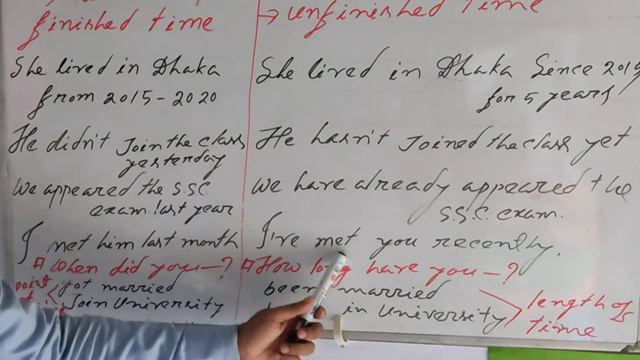 finished time
She lived in Dhaka
from 2015-2020
He didn't Join the class
yesterday
We appeared the S.SC
exam last year
I met him last month
When did you—?
point
got married
Join University
→ unfinished time
She lived in Dhaka Since 2015
for 5 years
He hasn't Joined the class yet
we have already appeared the
S.S.C. exam.
I've met you recently.
How long have you—?
been married
in University
length of
time